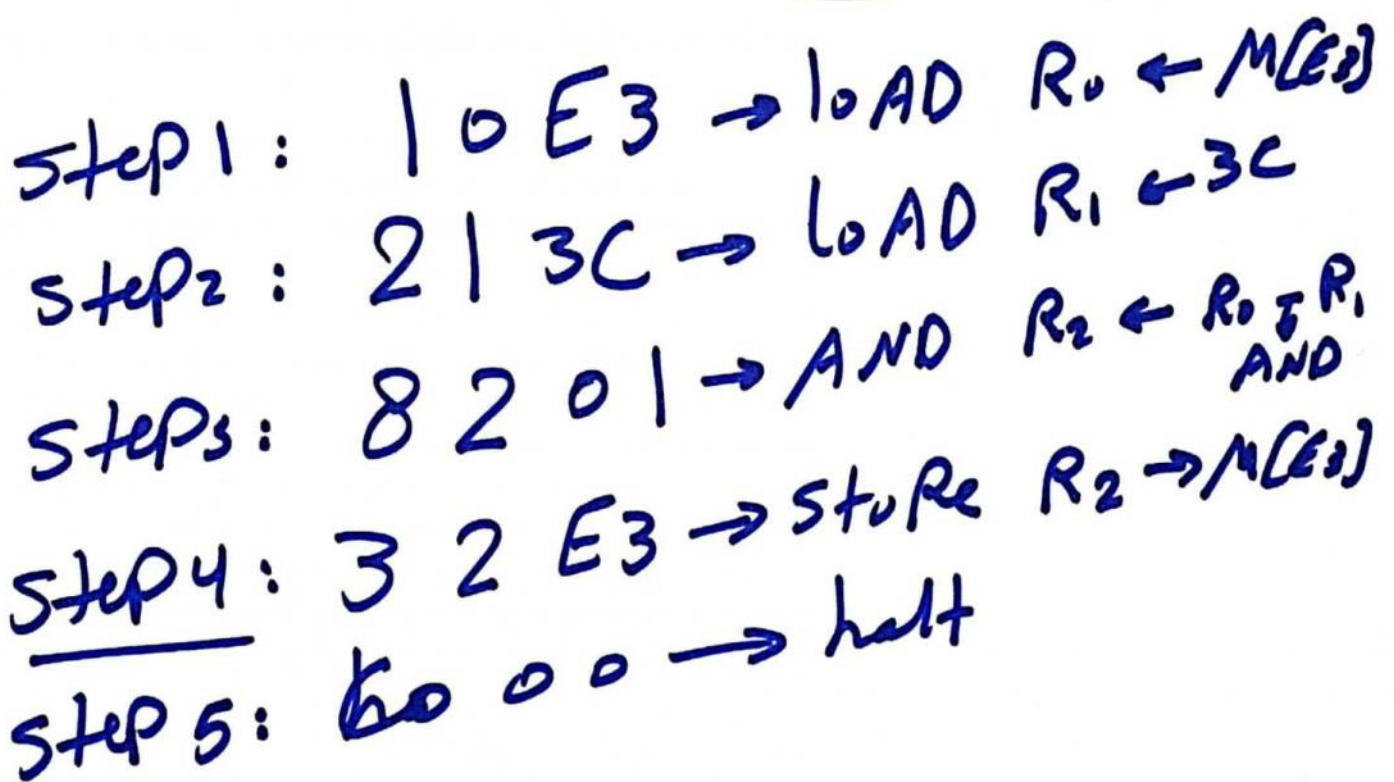 Step 1: 10E3 → loAD R0 ← M[E3]
Step2: 213C → loAD R1 ← 3C
Step3: 8201 → AND R2 ← R0 R1
AND
Step 4: 32E3 → stoRe R2 → M[E3]
Step 5: 00 → halt